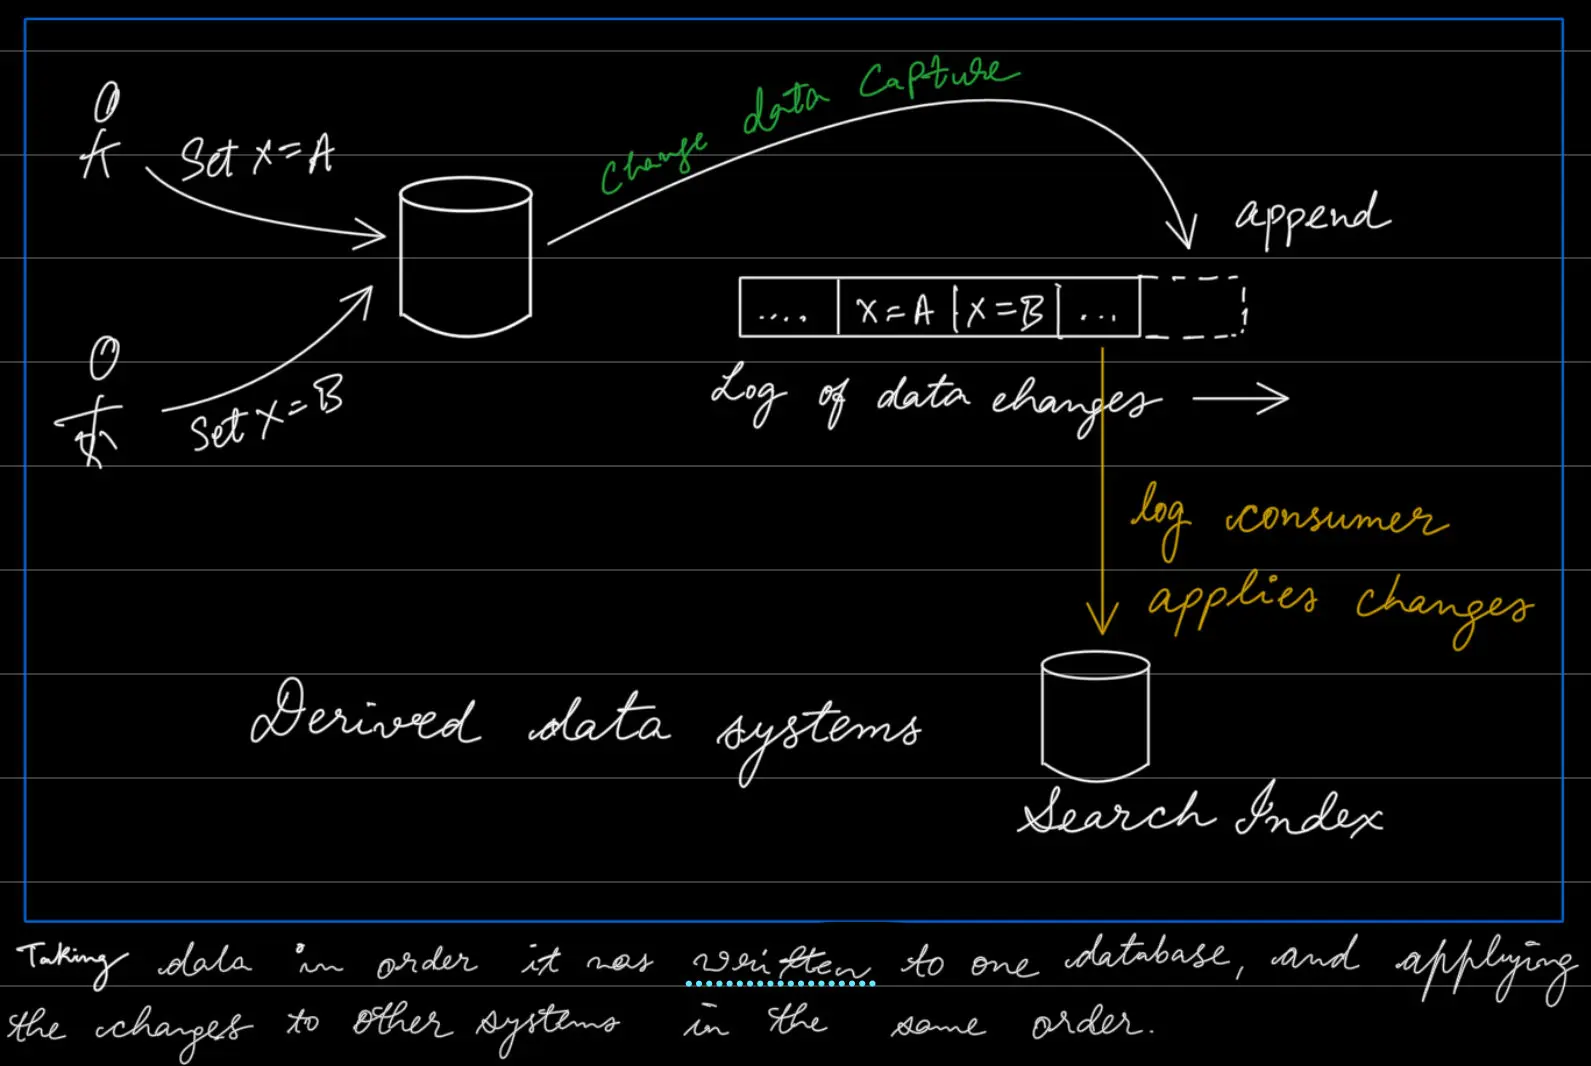 Change data Capture
Set X=A
append
.... X=A X=B ...
Set X=B
Log of data changes
log consumer
applies changes
Derived data systems
Search Index
Taking data in order it was written to one database, and applying
the changes to other systems in the same order.